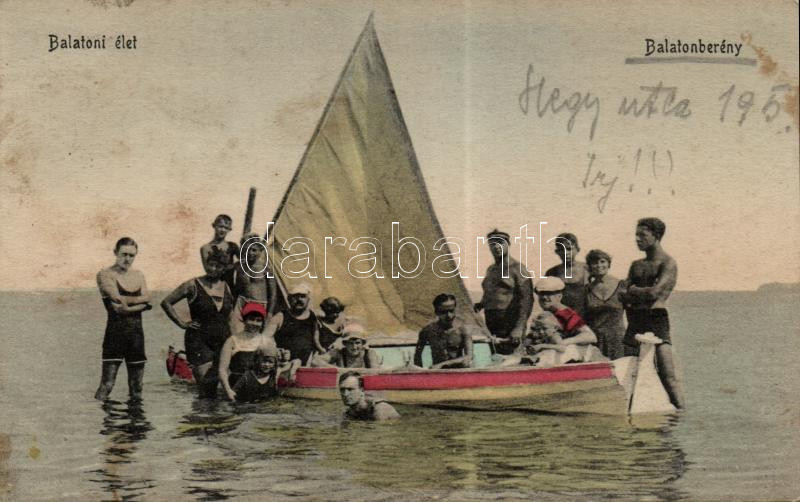 Balatoni élet
Balatonberény
Hegy utca 195.
Irj!!!
darabanth